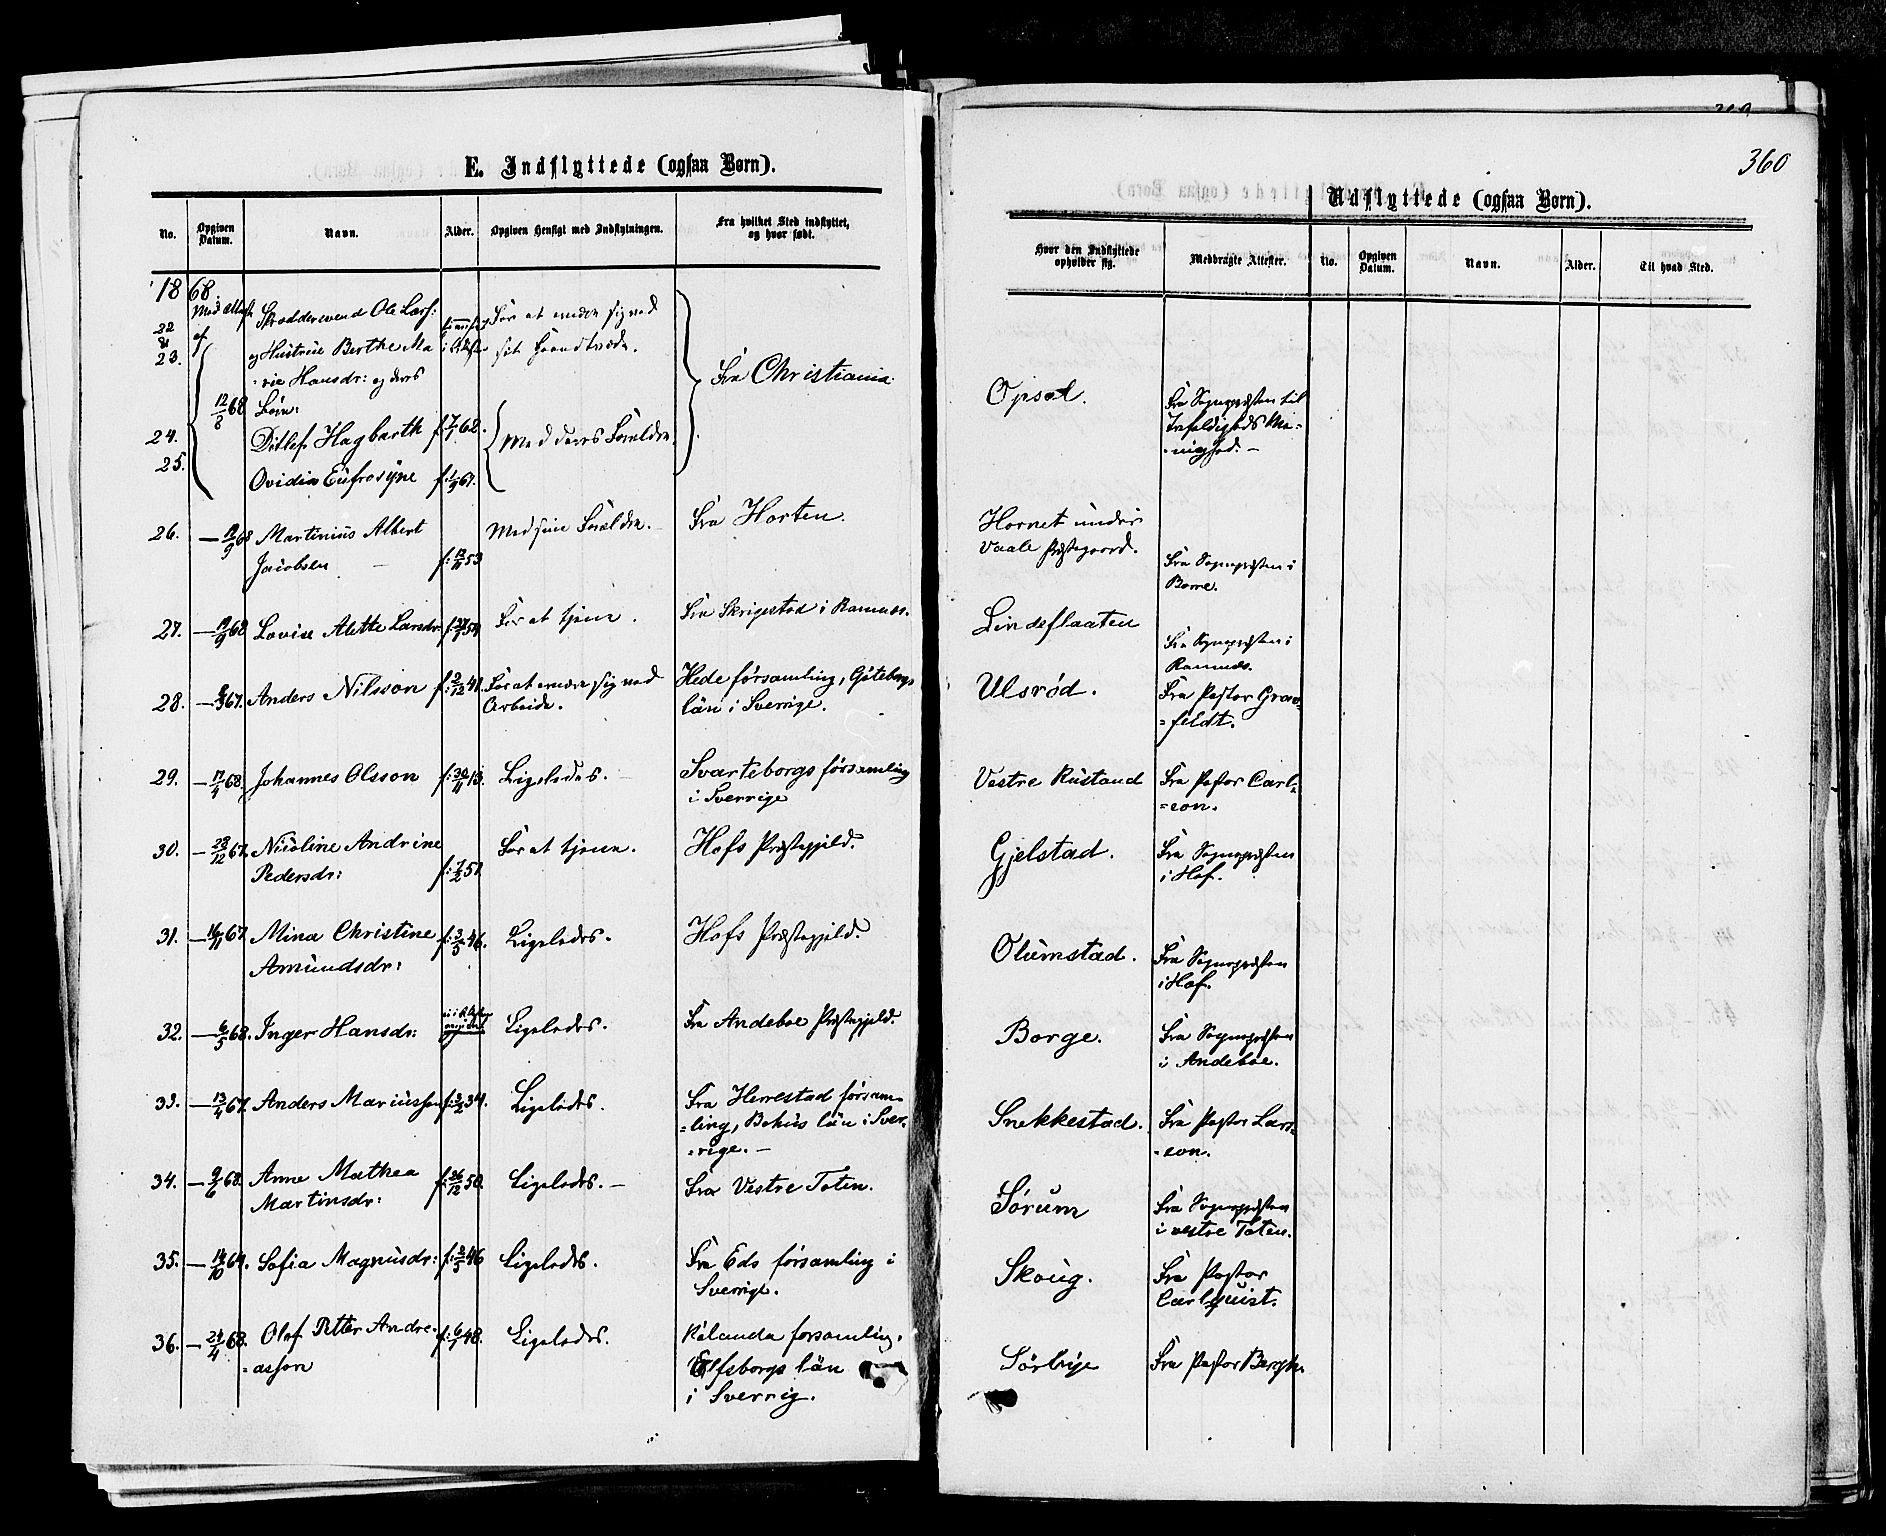 E. Indflyttede (ogsaa Børn).
No. Opgiven Datum. Navn. Alder. Opgiven Hensigt med Indflytningen. Fra hvilket Sted indflyttet, og hvor født.
1868.
Med Attest af
22 & 23. Skræddersvend Ole Lars: For at ernære sig ved
og Hustrue Berthe Ma sit Haandværk.
-rie Hansdr: og deres Fra Christiania.
12/8 68 Børn:
24. Ditlef Hagbarth f. 7/1 62. Med deres Forældre.
25. Ovidia Eufrosyne f: 1/9 67.
26. — 12/9 68 Martinius Albert Med sine Forældre. Fra Horten.
Jacobsen f: 12/11 53
27. — 19/9 68 Lovise Alette Larsdr f. 54 For at tjene. Fra Skrigestad i Ramnæs.
28. — 67. Anders Nilsson f: 2/12 41. For at ernære sig ved Hede församling, Göteborgs
Arbeide. län i Sverrige.
29. — 17/4 68. Johannes Olsson f: 30/11 13. Ligeledes. Svarteborgs församling
i Sverrige
30. — 28/12 67. Nicoline Andrine For at tjene. Hofs Præstegjeld.
Pedersdr: f: 7/2 51
31. — 16/11 67. Mina Christine f: 3/5 46. Ligeledes. Hofs Præstegjeld.
Amundsdr:
32. — 6/5 68. Inger Hansdr: Ligeledes. Fra Andeboe Præstegjeld.
33. — 13/4 67. Anders Mariusson f: 3/2 34. Ligeledes. Fra Herrestad församling,
Bohus län i Sverrige. —
34. — 9/6 68. Anne Mathea f: 26/12 50. Ligeledes. — Fra Vestre Toten.
Martinsdr:
35. — 14/10 64. Sofia Magnusdr: f: 2/5 46 Ligeledes. Fra Eds församling i
Sverrige.
36. — 24/4 68. Olof Petter Andre= f: 6/1 48. Ligeledes. församling,
=asson Elfsborgs län
i Sverrig.
360
Udflyttede (ogsaa Børn).
Hvor den Indflyttede opholder sig. Medbragte Attester. No. Opgiven Datum. Navn. Alder. Til hvad Sted.
Opsal. Fra Sognepræsten til
Trefoldigheds Me-
-nighed. —
Hornet under
Vaale Præstegaard. Fra Sognepræsten i
Borre.
Lindeflaaten Fra Sognepræsten i
Ramnæs.
Ulsrød. Fra Pastor Grau=
=feldt.
Vestre Rustand Fra Pastor Carl=
=son.
Gjelstad. Fra Sognepræsten
i Hof.
Olumstad. Fra Sognepræsten
i Hof.
Borge. Fra Sognepræsten
i Andeboe.
Snekkestad. Fra Pastor Lars=
=son.
Sørum Fra Sognepræsten
i vestre Toten.
Skoug. Fra Pastor
Carlquist.
Sørbye Fra Pastor Bergh.